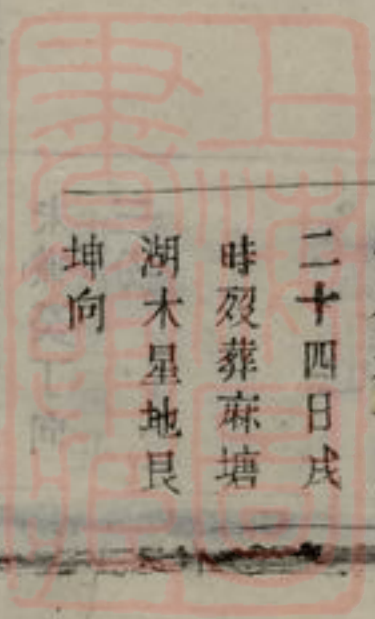 二十四日戌
時殁葬麻塘
湖木星地艮
坤向